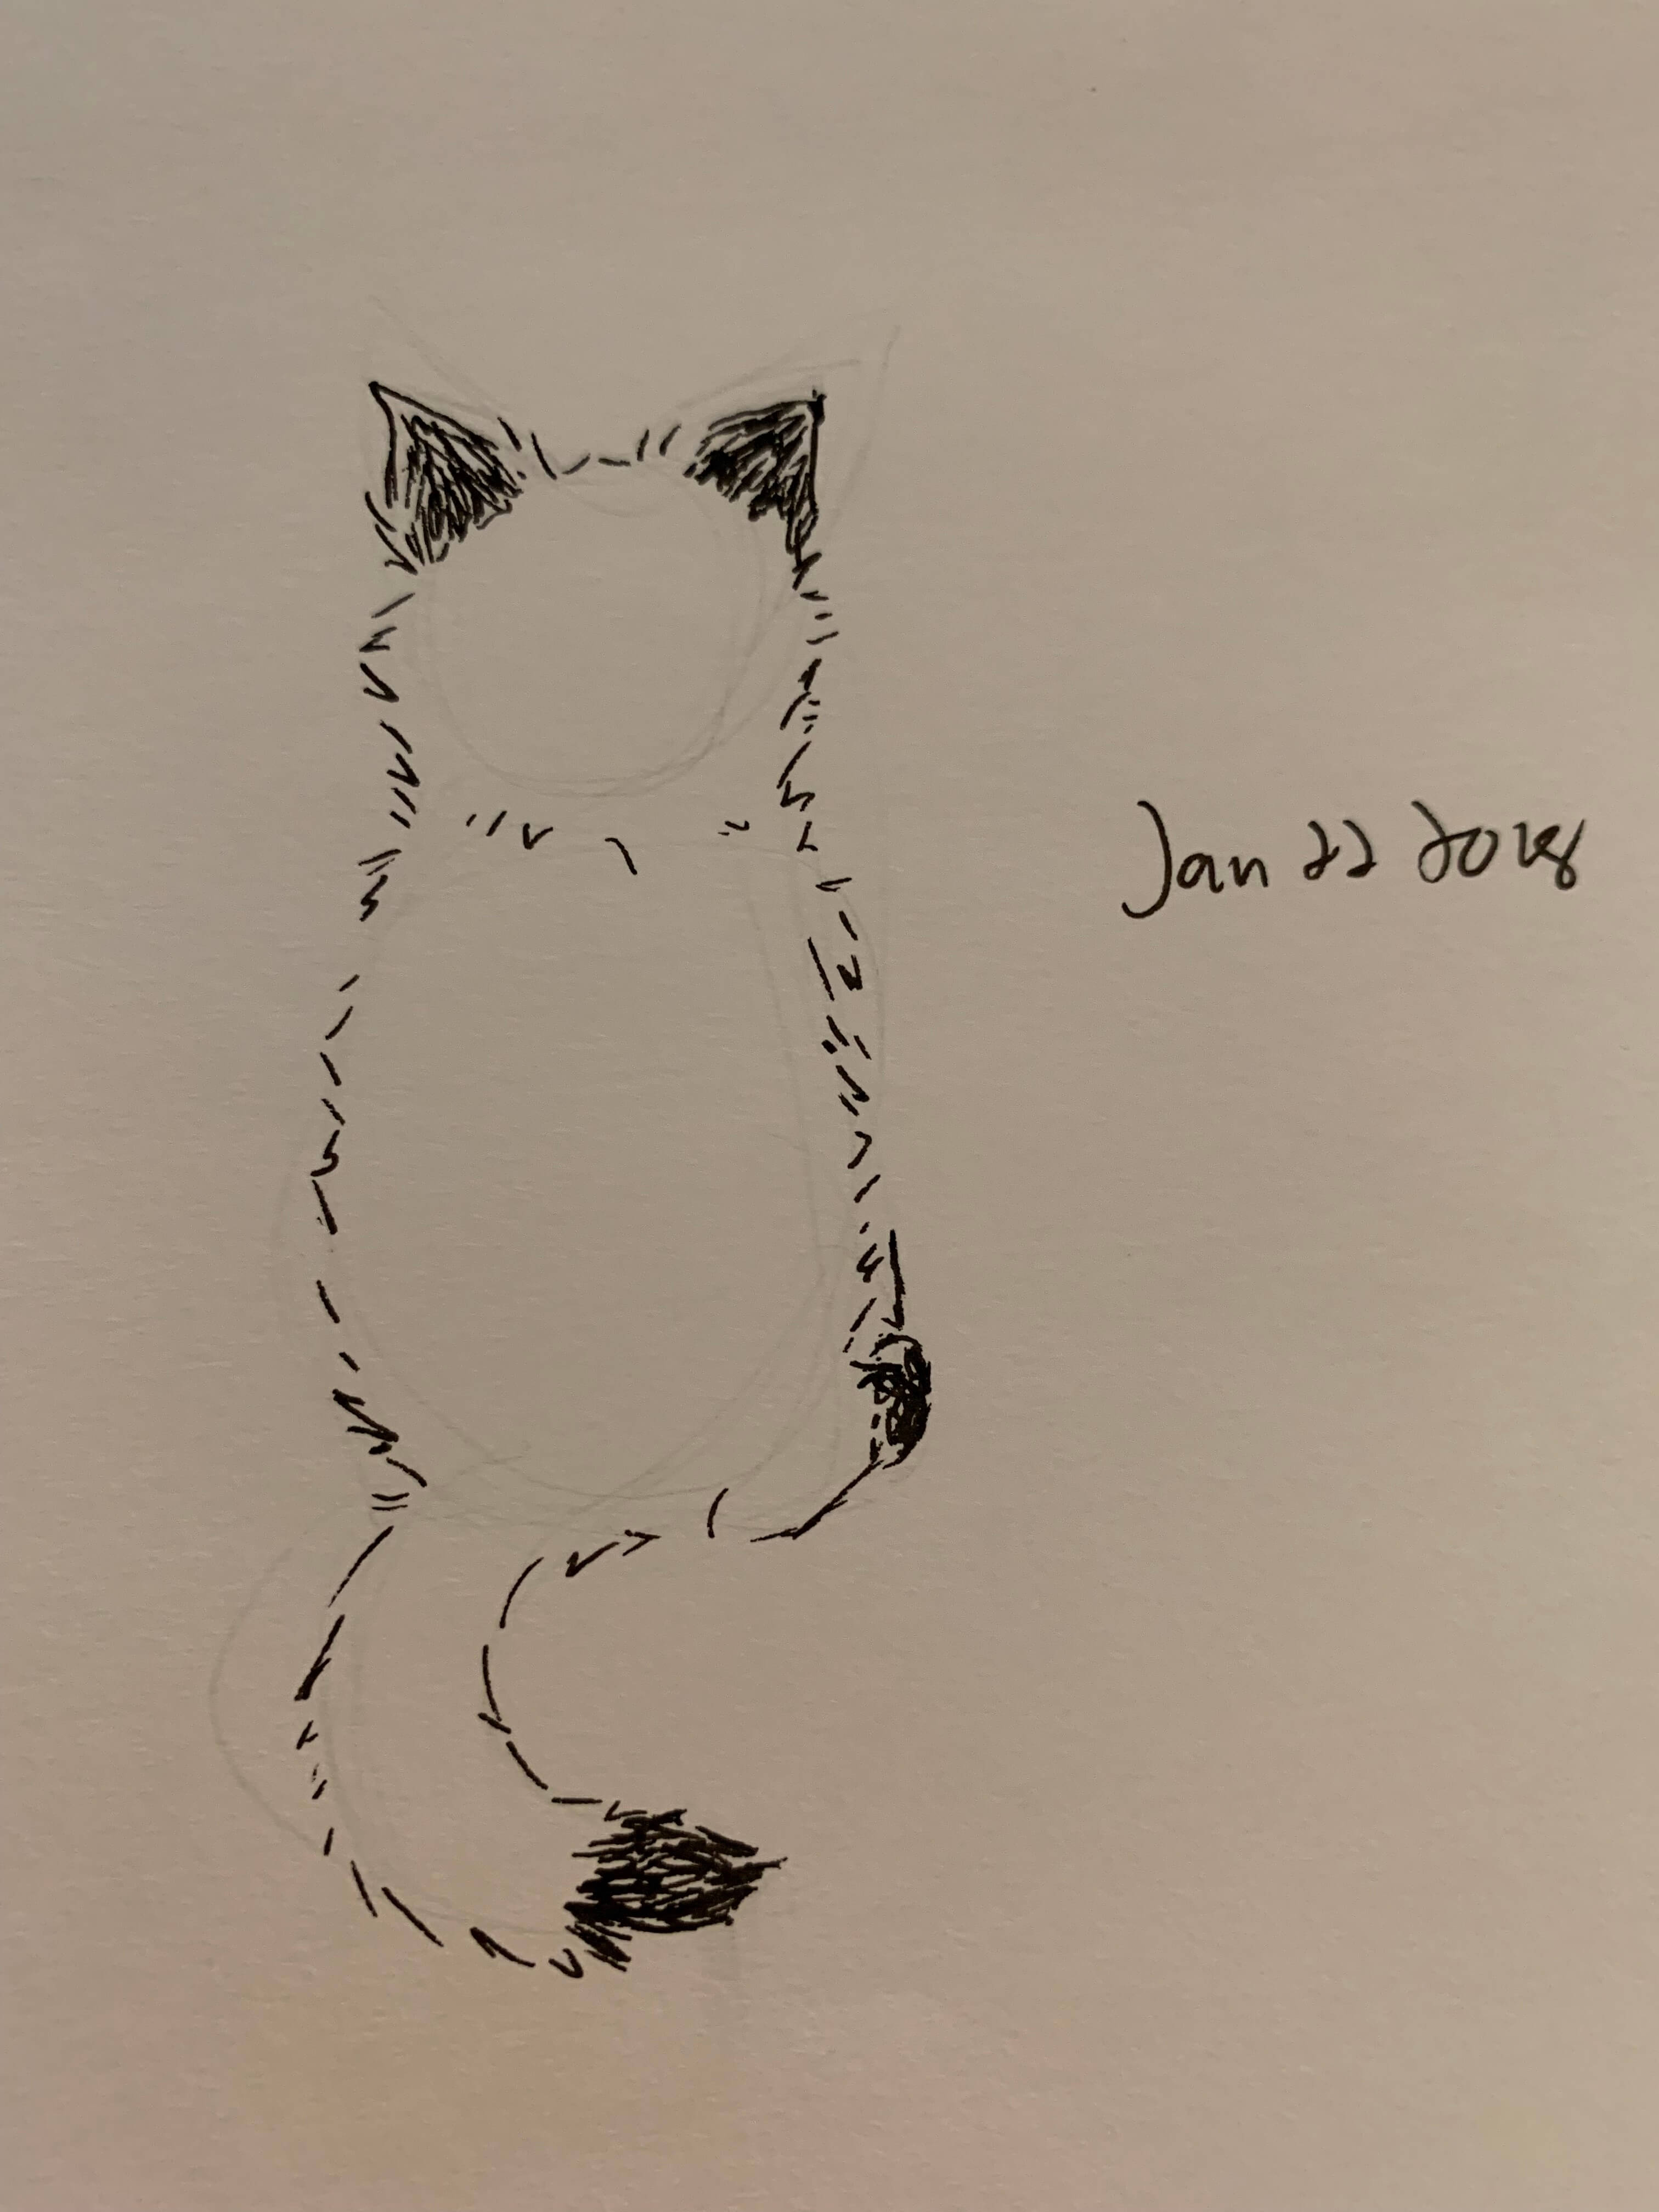 Jan 22 2018